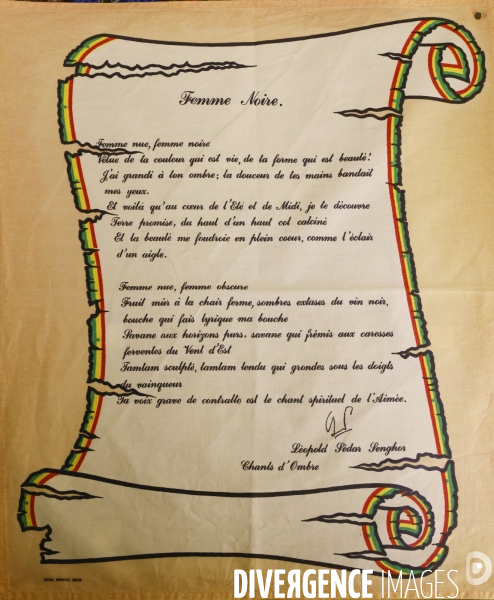 Femme Noire.
Femme nue, femme noire
Vétue de ta couleur qui est vie, de ta forme qui est beauté!
J'ai grandi à ton ombre; la douceur de tes mains bandait
mes yeux.
Et voilà qu'au cœur de l'Eté et de Midi, je te découvre
Terre promise, du haut d'un haut col calciné
Et ta beauté me foudroie en plein coeur, comme l'éclair
d'un aigle.
Femme nue, femme obscure
Fruit mûr à la chair ferme, sombres extases du vin noir,
bouche qui fais lyrique ma bouche
Savane aux horizons purs, savane qui frémis aux caresses
ferventes du Vent d'Est
Tamtam sculpté, tamtam tendu qui grondes sous les doigts
du vainqueur
Ta voix grave de contralto est le chant spirituel de l'Aimée.
Léopold Sédar Senghor
Chants d'Ombre
DIVERGENCE IMAGES